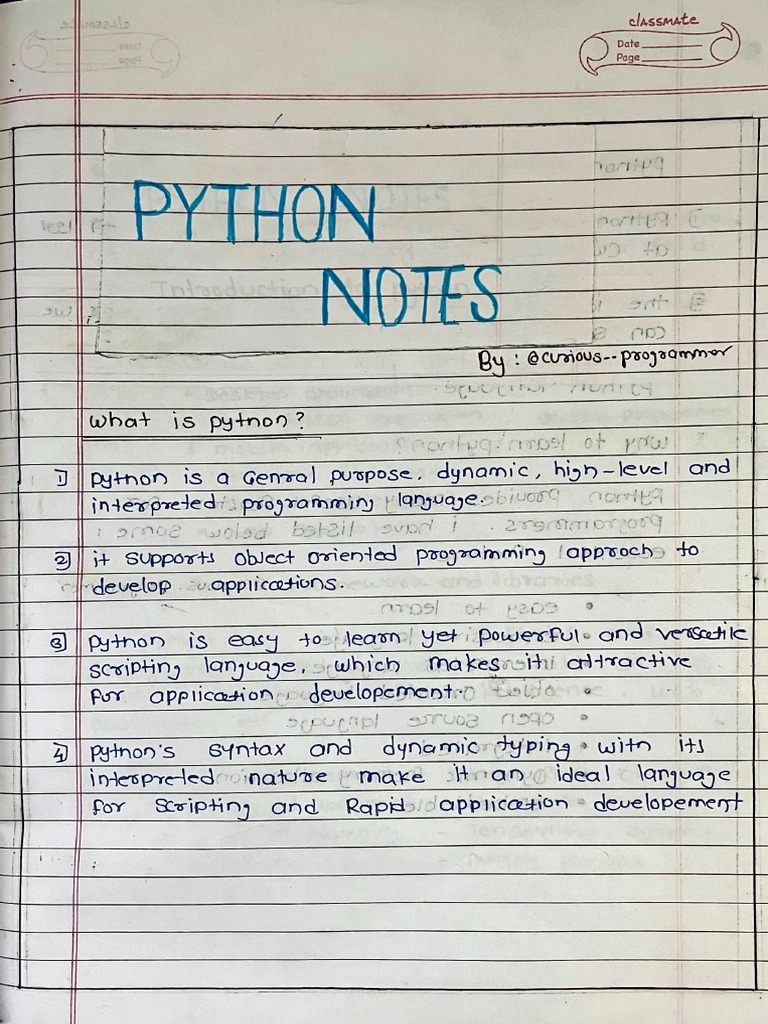 classmate
Date
Page
PYTHON
NOTES
By : @curious--programmer
What is python?
1) Python is a Genral purpose, dynamic, high-level and
interpreted programming language.
2) it supports object oriented programming approch to
develop applications.
3) Python is easy to learn yet powerful and versatile
scripting language, which makes it attractive
for application developement.
4) Python's syntax and dynamic typing with its
interpreted nature make it an ideal language
for scripting and Rapid application developement